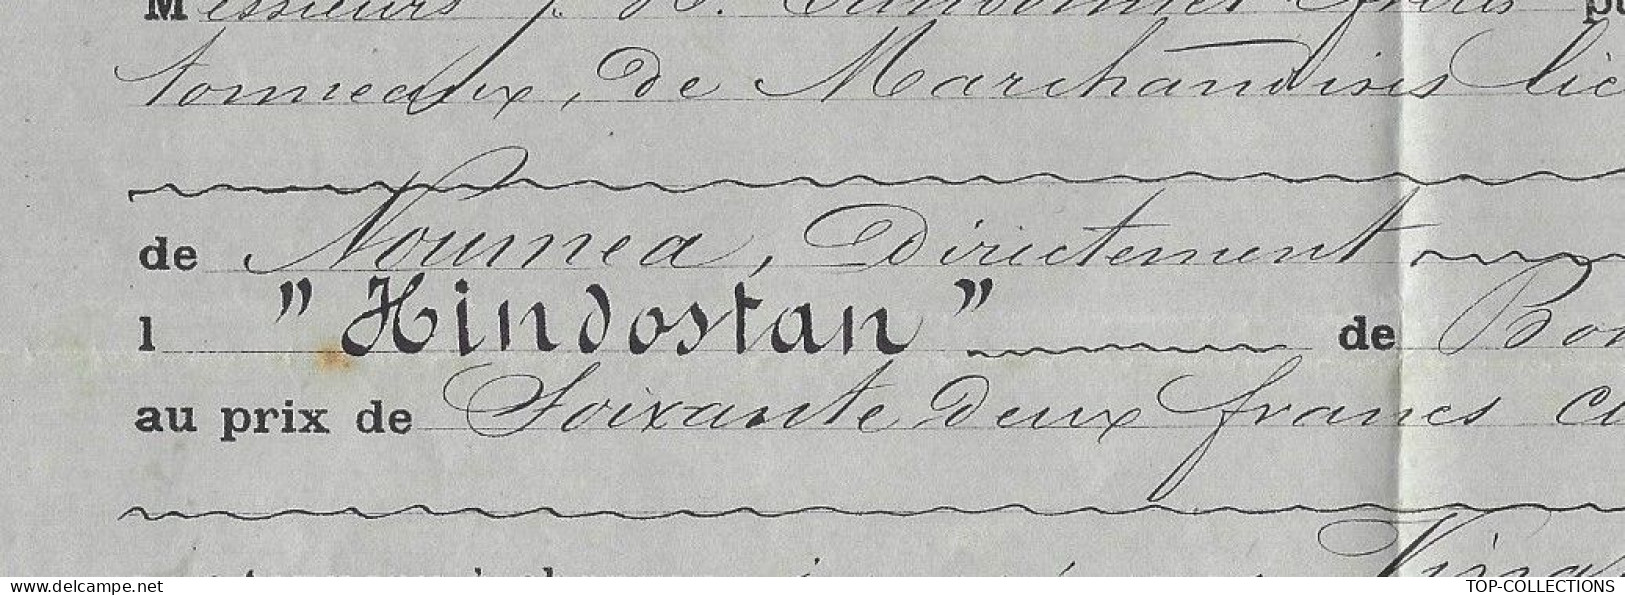 Messieurs J. H. frères
tonneaux, de Marchandises lic
de Noumea, Directement
l "Hindostan" de Bor
au prix de Soixante deux francs
www.delcampe.net TOP-COLLECTIONS